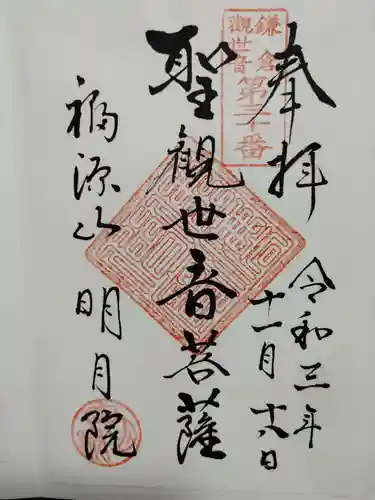 奉拝
鎌倉
觀世音
第三十番
令和三年
十一月十六日
聖觀世音菩薩
福源山
明月院